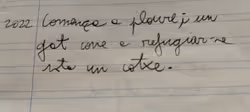 2022 Comença a ploure i un
gat corre a refugiar-se
sota un cotxe.